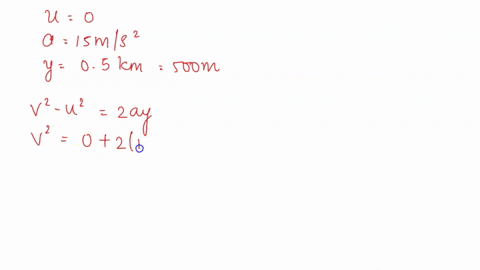 u = 0
a = 15 m/s²
y = 0.5 km = 500m
v² - u² = 2ay
v² = 0 + 2(